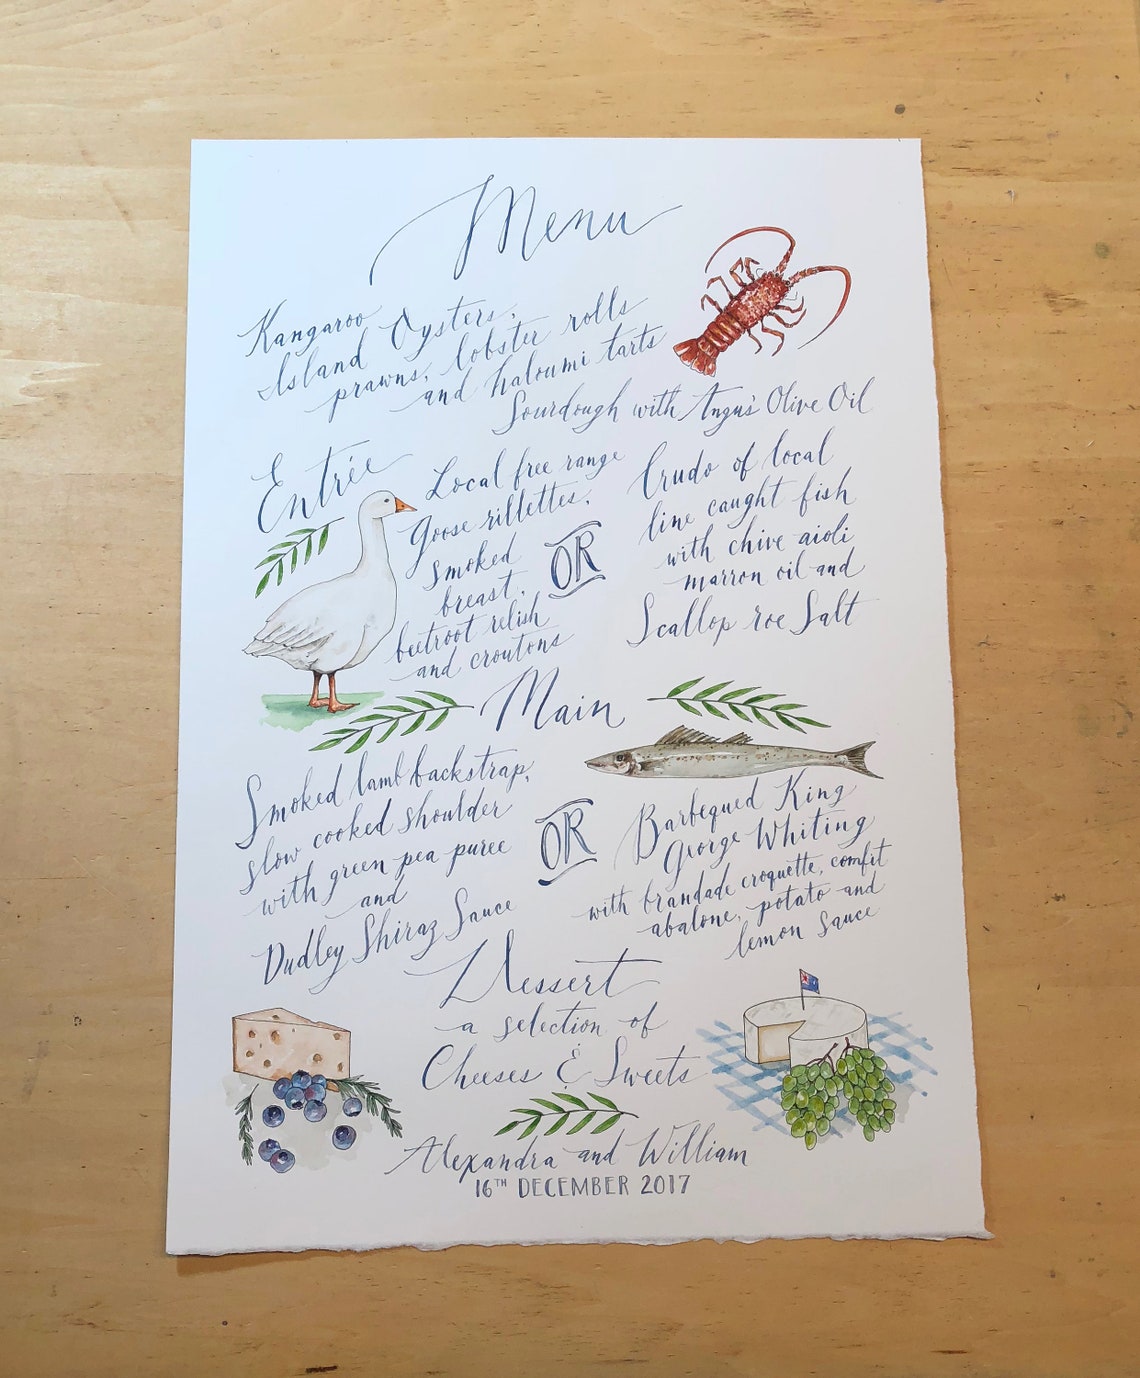 Menu
Kangaroo
Island Oysters,
prawns, lobster rolls
and haloumi tarts
Sourdough with Angus' Olive Oil
Entrée
Local free range
goose rillettes,
smoked
breast,
beetroot relish
and croutons
OR
Crudo of local
line caught fish
with chive aioli
marron oil and
Scallop roe Salt
Main
Smoked lamb backstrap,
slow cooked shoulder
with green pea puree
and
Dudley Shiraz Sauce
OR
Barbequed King
George Whiting
with brandade croquette, comfit
abalone, potato and
lemon sauce
Dessert
a selection of
Cheeses & Sweets
Alexandra and William
16TH DECEMBER 2017